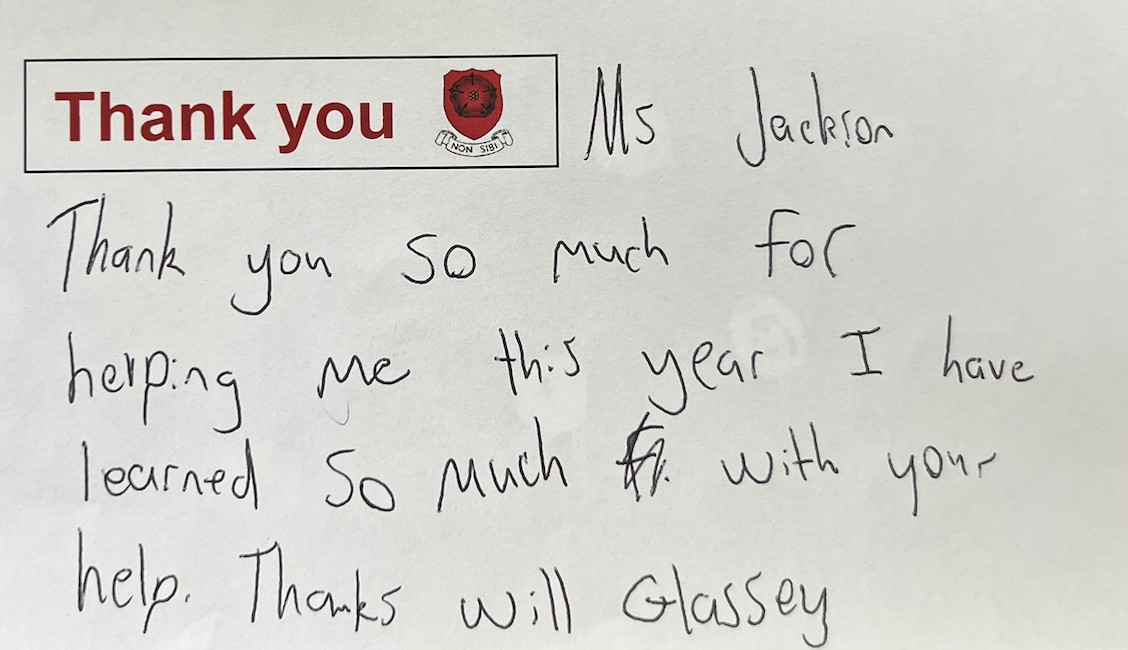 Thank you NON SIBI Ms Jackson
Thank you so much for
helping me this year I have
learned so much with your
help. Thanks Will Glassey